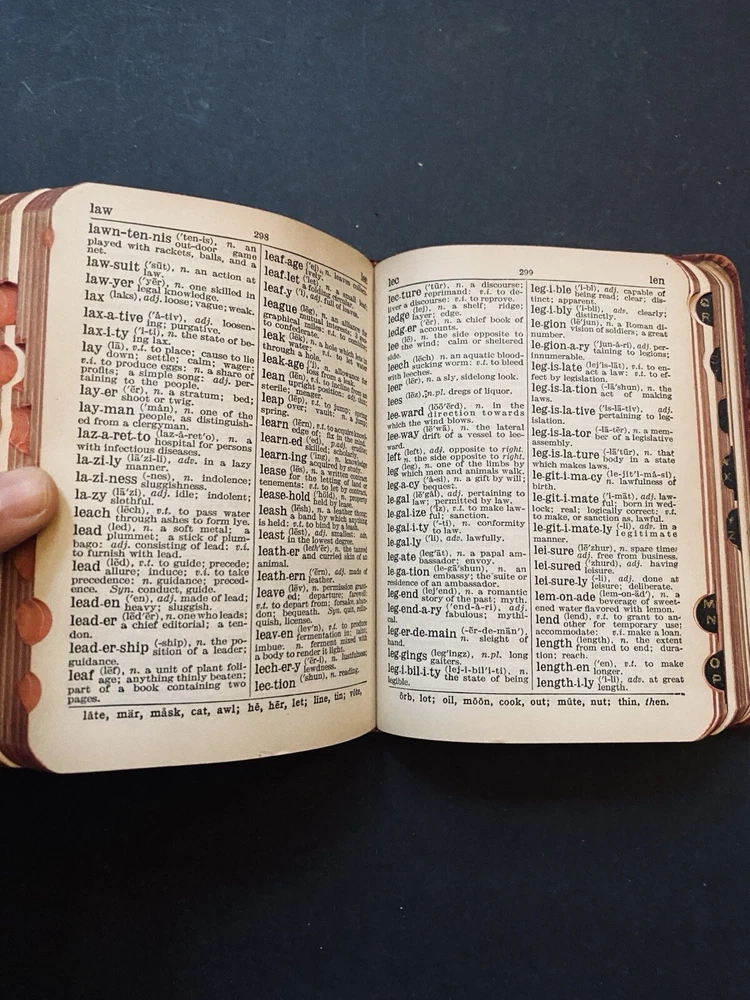 law
298
lawn-ten-nis ('ten-is), n. an
out-door game
played with rackets, balls, and a
net.
law-suit ('sūt), n. an action at
law.
law-yer ('yẽr), n. one skilled in
legal knowledge.
lax (laks), adj. loose; vague; weak.
lax-a-tive ('á-tiv), adj. loosen-
ing; purgative.
lax-i-ty ('i-ti), n. the state of be-
ing lax.
lay (lā), v.t. to place; cause to lie
down; settle; calm; wager:
v.i. to produce eggs: n. a share of
profits; a simple song: adj. per-
taining to the people.
lay-er ('ẽr), n. a stratum; bed;
shoot or twig.
lay-man ('mán), n. one of the
people, as distinguish-
ed from a clergyman.
laz-a-ret-to (laz-á-ret'o), n. a
hospital for persons
with infectious diseases.
la-zi-ly (lā'zi-li), adv. in a lazy
manner.
la-zi-ness (-nes), n. indolence;
sluggishness.
la-zy (lā'zi), adj. idle; indolent;
slothful.
leach (lēch), v.t. to pass water
through ashes to form lye.
lead (led), n. a soft metal; a
plummet; a stick of plum-
bago: adj. consisting of lead: v.t.
to furnish with lead.
lead (lēd), v.t. to guide; precede;
allure; induce; v.i. to take
precedence: n. guidance; preced-
ence. Syn. conduct, guide.
lead-en ('en), adj. made of lead;
heavy; sluggish.
lead-er (lēd'ẽr), n. one who leads;
a chief editorial; a ten-
don.
lead-er-ship (-ship), n. the po-
sition of a leader;
guidance.
leaf (lēf), n. a unit of plant foli-
age; anything thinly beaten;
part of a book containing two
pages.
leaf-age ('ej), n. leaves
leaf-let ('let), n. a small leaf;
a folding circular.
leaf-y ('i), adj. full of leaves.
league (lēg), n. an alliance
mutual interests
graphical miles: v.i.
to confederate.
leak (lēk), n. a hole which lets in
water: v.i. to let water
through a hole.
leak-age ('ej), n. allowance
loss from a leak.
lean (lēn), v.t. to incline from an
upright position: adj.
sterile; meager.
leap (lēp), v.t. to jump; spring
over; vault: n. a jump;
spring.
learn (lẽrn), v.t. to acquire knowl-
edge of; fix in the mind.
learn-ed (ed), p.adj. erudite;
skilled; scholarly.
learn-ing ('ing), n. knowledge
acquired by study.
lease (lēs), n. a written contract
for the letting of land or
tenements: v.t. to let by contract.
lease-hold ('hōld), n. property
held by lease.
leash (lēsh), n. a leather thong;
a band by which anything
is held: v.t. to bind by a leash.
least (lēst), adj. smallest: adv.
in the lowest degree.
leath-er (leth'ẽr), n. the tanned
and curried skin of an
animal.
leath-ern ('ẽrn), adj. made of
leather.
leave (lēv), n. permission grant-
ed; departure; farewell:
v.t. to depart from; forsake, aban-
don; bequeath. Syn. quit, relin-
quish, license.
leav-en (lev'n), v.t. to produce
fermentation in; taint;
imbue: n. ferment mixed with
a body to render it light.
lech-er-y ('ẽr-i), n. lustfulness;
lewdness.
lec-tion ('shun), n. reading.
lāte, mär, måsk, cat, awl; hē, hẽr, let; līne, tin; rōte,
lec
299
len
lec-ture ('tûr), n. a discourse;
reprimand: v.t. to de-
liver a discourse: v.t. to reprove.
ledge (lej), n. a shelf; ridge;
layer; edge.
ledg-er ('ẽr), n. chief book of
accounts.
lee (lē), n. the side opposite to
the wind: calm or sheltered
side.
leech (lēch) n. an aquatic blood-
sucking worm: v.t. to bleed
with leeches.
leer (lēr), n. a sly, sidelong look.
lees (lēz), n.pl. dregs of liquor.
lee-ward (lōō'ẽrd), n. in the
direction towards
which the wind blows.
lee-way (lē'wā), n. the lateral
drift of a vessel to lee-
ward.
left (left), adj. opposite to right.
n. the side opposite to right.
leg (leg), n. one of the limbs by
which men and animals walk.
leg-a-cy ('á-si), n. a gift by will;
bequest.
le-gal (lē'gál), adj. pertaining to
law; permitted by law.
le-gal-ize ('īz), v.t. to make law-
ful; sanction.
le-gal-i-ty ('i-ti), n. conformity
to law.
le-gal-ly ('li), adv. lawfully.
leg-ate (leg'át), n. a papal am-
bassador; envoy.
le-ga-tion (le-gā'shun), n. an
embassy; the suite or
residence of an ambassador.
leg-end (lej'end), n. a romantic
story of the past; myth.
leg-end-a-ry ('end-á-ri), adj.
fabulous; mythi-
cal.
leg-er-de-main (-ẽr-de-mān'),
n. sleight of
hand.
leg-gings (leg'ingz), n.pl. long
gaiters.
leg-i-bil-i-ty (lej-i-bil'i-ti), n.
the state of being
legible.
leg-i-ble ('i-bl), adj. capable of
being read; clear; dis-
tinct; apparent.
leg-i-bly ('i-bli), adv. clearly;
distinctly.
le-gion (lē'jun), n. a Roman di-
vision of soldiers; a great
number.
le-gion-a-ry ('jun-á-ri), adj. per-
taining to legions;
innumerable.
leg-is-late (lej'is-lāt), v.i. to en-
act a law: v.t. to ef-
fect by legislation.
leg-is-la-tion (-lā'shun), n. the
act of making
laws.
leg-is-la-tive ('is-lā-tiv), adj.
pertaining to leg-
islation.
leg-is-la-tor (-lā-tẽr), n. a mem-
ber of a legislative
assembly.
leg-is-la-ture (-lā'tûr), n. that
body in a state
which makes laws.
le-git-i-ma-cy (le-jit'i-má-si),
n. lawfulness of
birth.
le-git-i-mate ('i-māt), adj. law-
ful; born in wed-
lock; real; logically correct: v.t.
to make, or sanction as, lawful.
le-git-i-mate-ly (-li), adv. in a
legitimate
manner.
lei-sure (lē'zhur), n. spare time:
adj. free from business.
lei-sured ('zhurd), adj. having
leisure.
lei-sure-ly (-li), adj. done at
leisure; deliberate.
lem-on-ade (lem-on-ād'), n. a
beverage of sweet-
ened water flavored with lemon.
lend (lend), v.t. to grant to an-
other for temporary use;
accommodate: v.i. make a loan.
length (length), n. the extent
from end to end; dura-
tion; reach.
length-en ('en), v.t. to make
longer.
length-i-ly ('i-li), adv. at great
length.
ôrb, lot; oil, mōōn, cook, out; mūte, nut; thin, then.
M
N
O
P